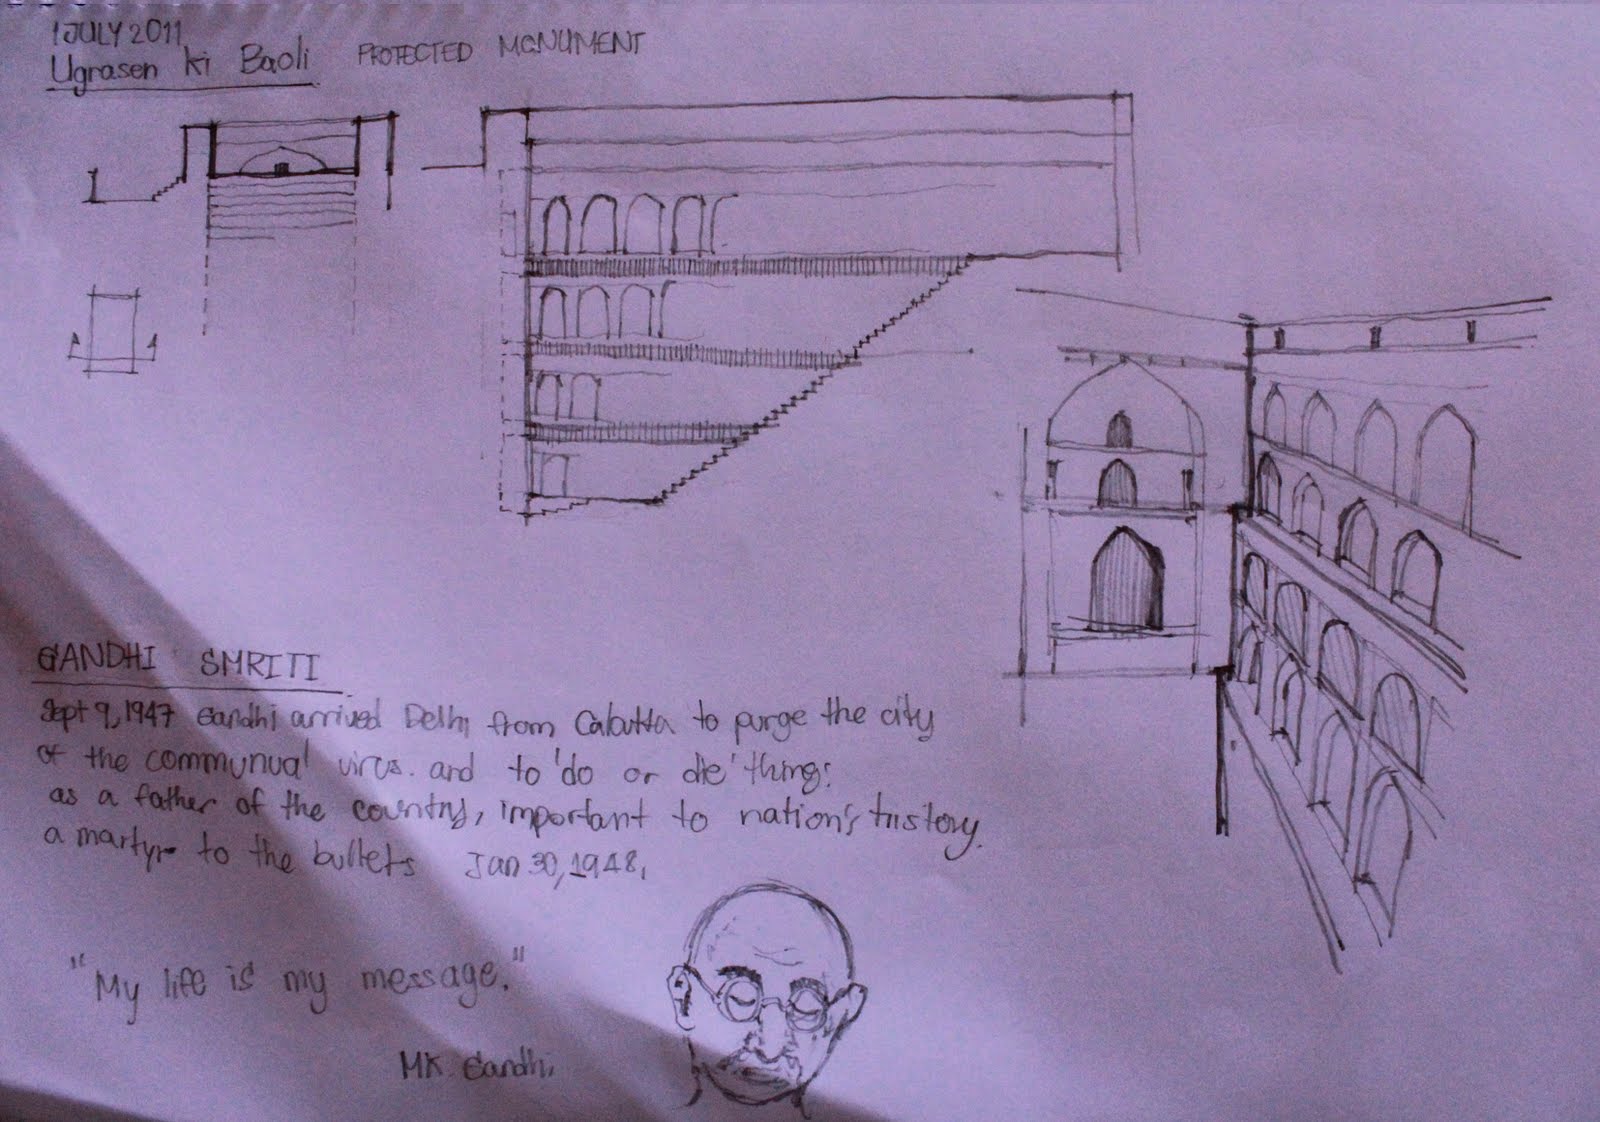 1 JULY 2011
Ugrasen ki Baoli PROTECTED MONUMENT
GANDHI SMRITI
Sept 9, 1947 Gandhi arrived Delhi from Calcutta to purge the city
of the communual virus. and to 'do or die' thing.
as a father of the country, important to nation's history.
a martyr to the bullets Jan 30, 1948,
"My life is my message."
MK. Gandhi